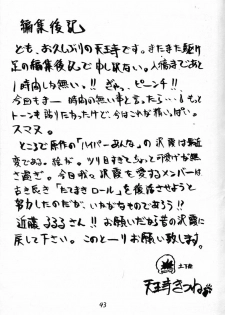 編集後記
ども、お久しぶりの天王寺です。またまた駆け
足の編集後記で申し訳ない。入稿まであと
1時間しか無い!!ぎゃ、ピーンチ!!
今回もまー時間の無い事と言ったら…もっと
トーンも貼りたかったけど、今はこれが精いっぱい。
スマヌ。
ところで原作の「ハイパーあんな」の沢霞は最近
変である。絵が。ツリ目すぎてちょっと可愛げが無
さ過ぎ。今日我々沢霞を愛するメンバーは
古き良き「たてまきロール」を復活させようと
努力したのだが、いかがなものであろう??
近藤るるるさん!!お願いだから昔の沢霞に
戻して下さい。このとーりお願い致します。
土下座
天王寺きつね
43